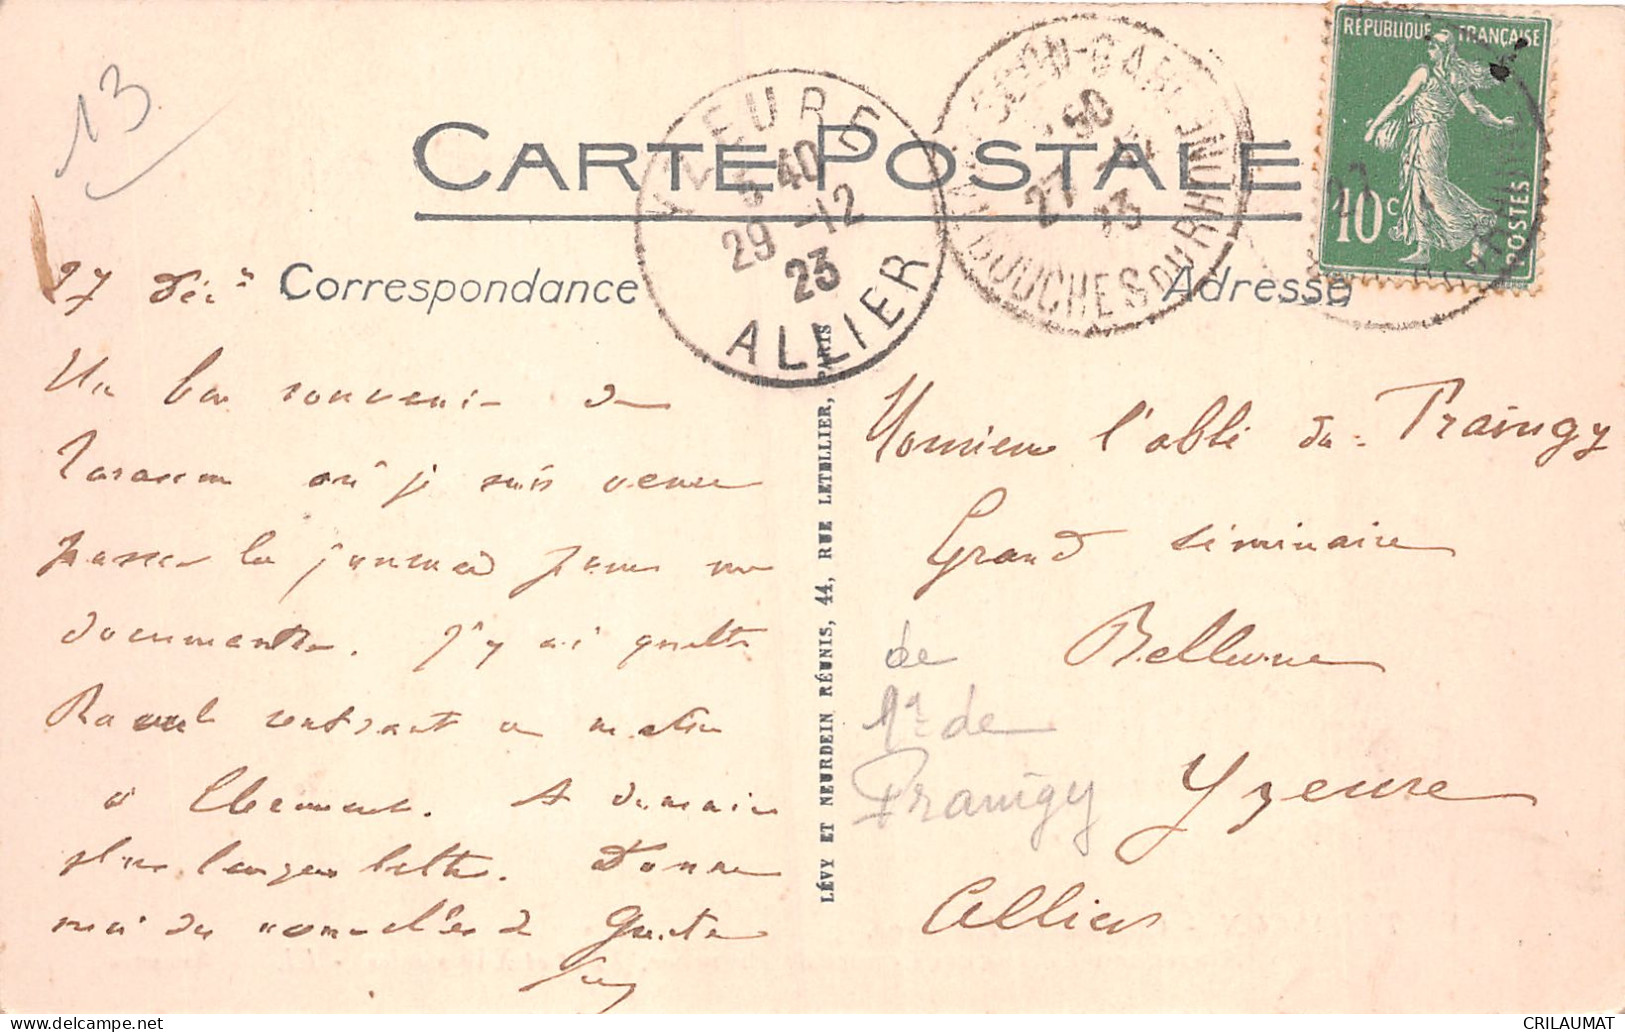 13
CARTE POSTALE
RÉPUBLIQUE FRANÇAISE
10 c
POSTES
YZEURE
5 40
29 -12
23
ALLIER
27
23
BOUCHES DU RHONE
27 Déc.
Correspondance
Adresse
Un bon souvenir de
Tarascon où je suis venu
passer la journée pour me
documenter. J'y ai quitté
Raoul rentrant ce matin
à Clermont. A demain
plus longue lettre. Donne
moi des nouvelles de
Guy
Monsieur l'abbé du Praingy
Grand Séminaire
de Bellevue
Mq. de
Praingy
Yzeure
Allier
LÉVY ET NEURDEIN RÉUNIS, 44, RUE LETELLIER, PARIS
CRILAUMAT